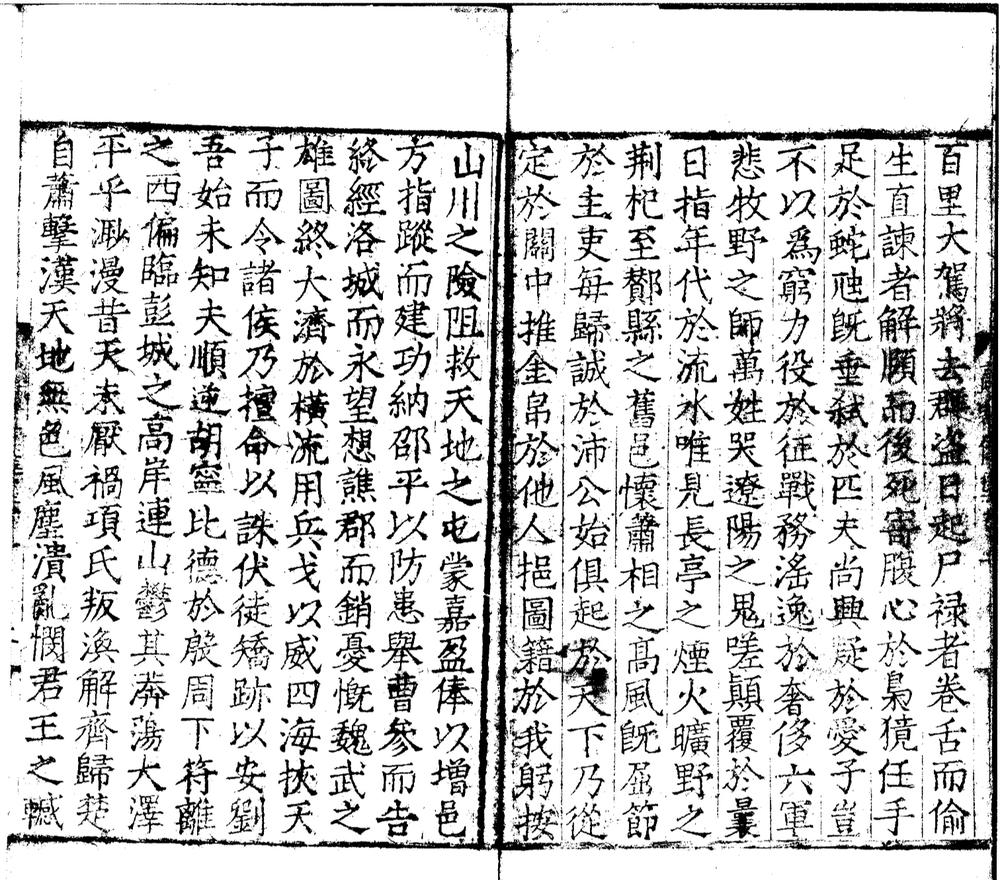 百里大駕將去群盜日起尸禄者卷舌而偷
生直諫者解頥而後死寄腹心於梟獍任手
足於蛇虺旣垂弒於匹夫尚興疑於愛子豈
不以爲窮力役於征戰務滛逸於奢侈六軍
悲牧野之師萬姓哭遼陽之鬼嗟顛覆於曩
日指年代於流水唯見長亭之煙火曠野之
荆杞至酇縣之舊邑懷蕭相之高風旣屈節
於主吏每歸誠於沛公始俱起於天下乃從
定於關中推金帛於他人挹圖籍於我躬按
山川之險阻救天地之屯蒙嘉盈俸以增邑
方指蹤而建功納邵平以防患舉曹參而告
終經洛城而永望想譙郡而銷憂慨魏武之
雄圖終大濟於橫流用兵戈以威四海挾天
子而令諸侯乃擅命以誅伏徒矯跡以安劉
吾始未知夫順逆胡寧比德於殷周下符離
之西偏臨彭城之高岸連山鬱其漭蕩大澤
平乎渺漫昔天未厭禍項氏叛渙解齊歸楚
自蕭擊漢天地無色風塵潰亂憫君王之轗